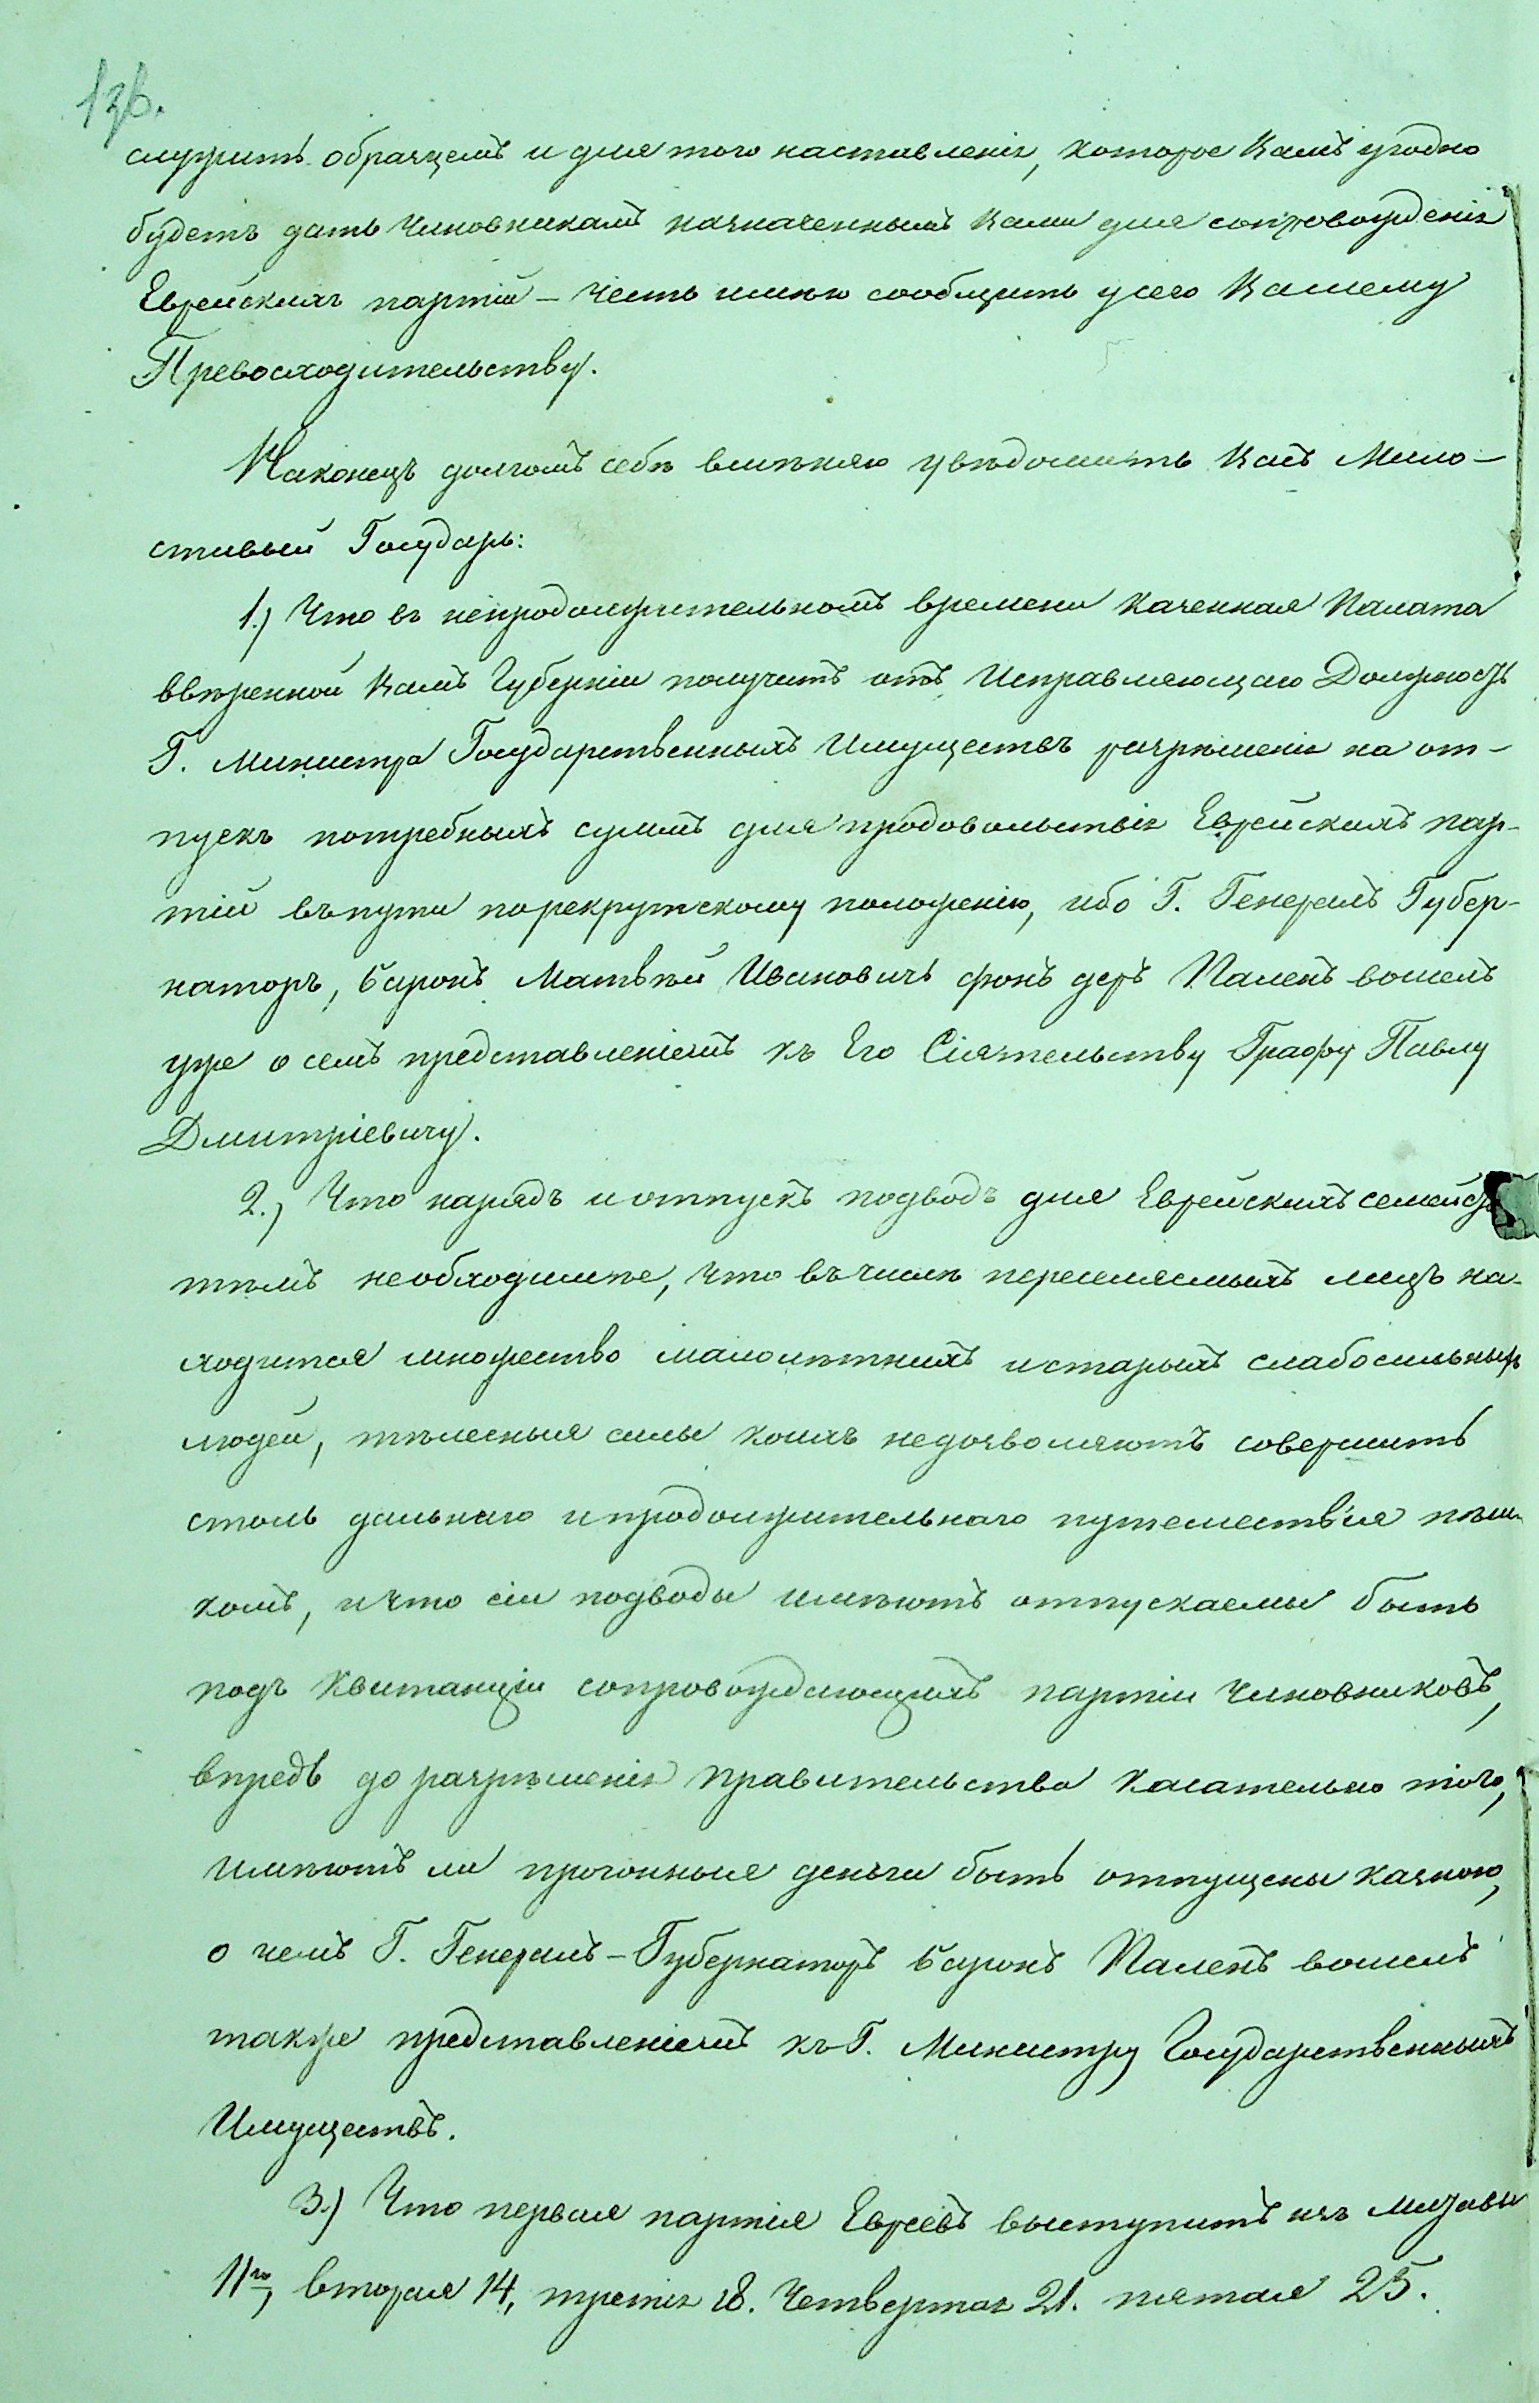 136.
служить образцемъ и для того наставленія, которое Вамъ угодно
будетъ дать Чиновникамъ назначеннымъ Вами для сопровожденія
Еврейскихъ партій – честь имѣю сообщить у сего Вашему
Превосходительству.
Наконецъ долгомъ себѣ вмѣняю увѣдомить Васъ Мило–
стивый Государь:
1.) Что въ непродолжительномъ времени Казенная Палата
ввѣренной Вамъ Губерніи получитъ отъ Исправляющаго Должность
Г. Министра Государственныхъ Имуществъ разрѣшеніе на от–
пускъ потребныхъ суммъ для продовольствія Еврейскихъ пар-
тій въ пути по рекрутскому положенію, ибо Г. Генералъ Губер-
наторъ, Баронъ Матвѣй Ивановичъ фонъ деръ Паленъ вошелъ
уже о семъ представленіемъ къ Его Сіятельству Графу Павлу
Дмитріевичу.
2.) Что нарядъ и отпускъ подводъ для Еврейскихъ семейств
тѣмъ необходимѣе, что въ числѣ переселяемыхъ лицъ на-
ходится множество малолѣтнихъ и старыхъ слабосильныхъ
людей, тѣлесныя силы коихъ недозволяютъ совершить
столь дальнаго и продолжительнаго путешествія пѣш-
комъ, и что сіи подводы имѣютъ отпускаемы быть
подъ квитанціи сопровождающихъ партіи Чиновниковъ,
впредь до разрѣшенія Правительства касательно того,
имѣютъ ли прогонныя деньги быть отпущены казною,
о чемъ Г. Генералъ–Губернаторъ Баронъ Паленъ вошелъ
также представленіемъ къ Г. Министру Государственныхъ
Имуществъ.
3.) Что первая партія Евреевъ выступитъ изъ Митавы
11го, вторая 14, третія 18. Четвертая 21. пятая 25.